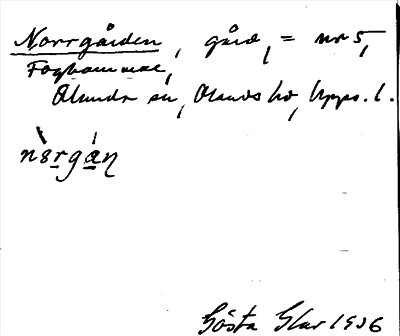 Norrgården, gård, = nr 5,
Foghammar,
Ölands sn, Olands hd, Upps. l.
nòrgán
Gösta Glar 1926